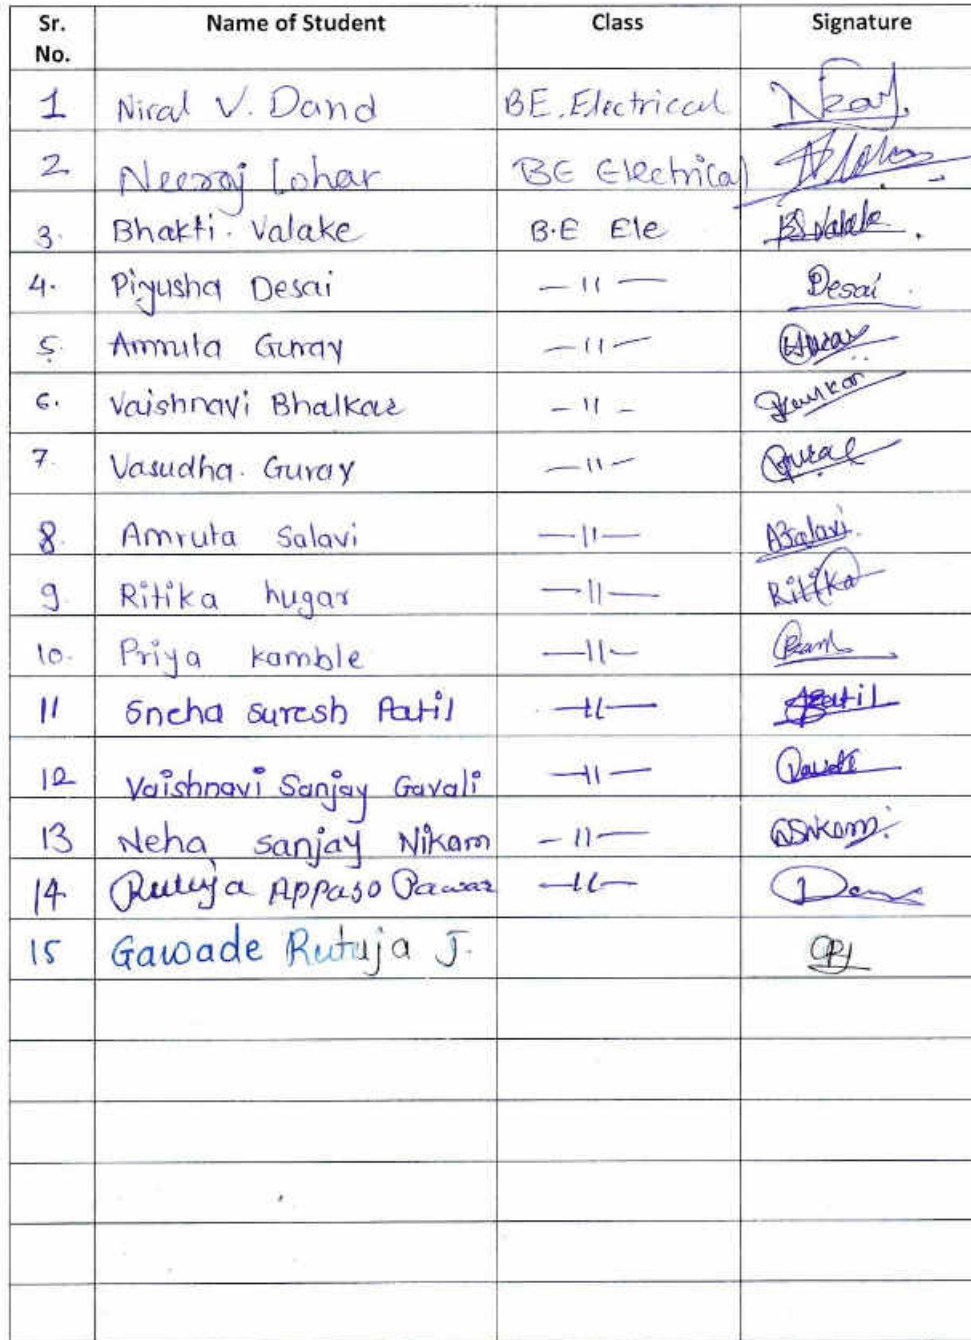 Sr. No. Name of Student Class Signature
1 Niral V. Dand BE. Electrical
2 Neeraj Lohar BE Electrical
3. Bhakti. Valake B.E Ele BSValake.
4. Piyusha Desai -11- Desai.
5. Amruta Gurav -11-
6. Vaishnavi Bhalkar -11-
7. Vasudha. Gurav -11-
8. Amruta Salavi -11- ASalavi.
9. Ritika hugar -11- Ritika
10. Priya kamble -11-
11 Sneha Suresh Patil -11- Patil
12 Vaishnavi Sanjay Gavali -11-
13 Neha sanjay Nikam -11-
14 Rutuja Appaso Pawar -11-
15 Gawade Rutuja J.